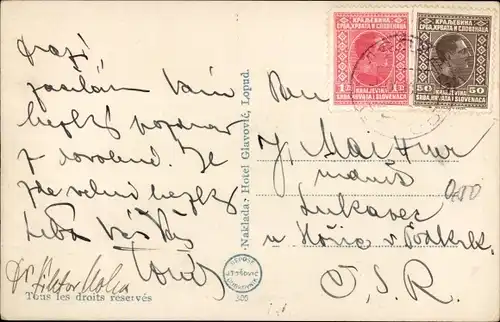 Drazí
posílám Vám
hezký pozdrav
z dovolené. Je
zde velmi hezky
Líbá Vás
Tous les droits réservés
Naklada: Hotel Glavović, Lopud.
300
КРАЉЕВИНА
СРБА, ХРВАТА И СЛОВЕНАЦА
1 D 1 D
KRALJEVINA
SRBA, HRVATA I SLOVENACA
КРАЉЕВИНА
СРБА, ХРВАТА И СЛОВЕНАЦА
50 50
KRALJEVINA
SRBA, HRVATA I SLOVENACA
Pan
J.
Lukavec
u Hořic v Podkrk.
Č.S.R.